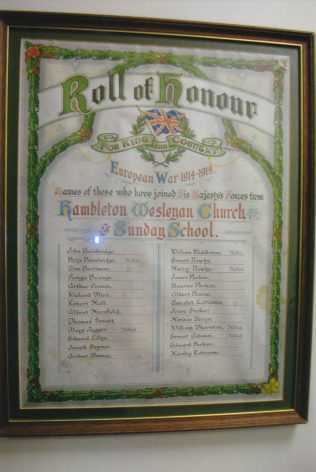 Roll of Honour
FOR KING AND COUNTRY
European War 1914-1919
Names of those who have joined His Majesty's Forces from
Hambleton Wesleyan Church
& Sunday School.
John Bainbridge.
Percy Bainbridge. Killed
Tom Berriman.
George
Arthur
Richard Hart.
Robert Hall.
Albert Horsfield.
Thomas
Killed
Edward
Joseph
Arthur
William Middleton. Killed
Ernest
Harry Killed
James Parker.
Maurice Parker.
Albert
Robinson.
Jesse Stoker.
Horace Terry.
William Thornton. Killed
Ernest Adams. Killed
Edward Parker.
Harley Robinson.